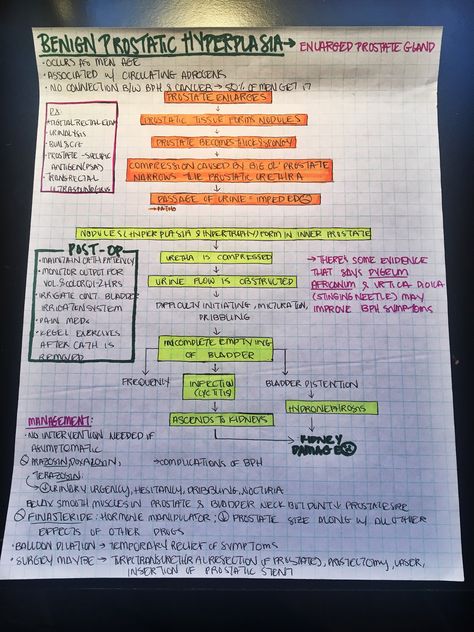 BENIGN PROSTATIC HYPERPLASIA → ENLARGED PROSTATE GLAND
• OCCURS AS MEN AGE
• ASSOCIATED W/ CIRCULATING ADROGENS
• NO CONNECTION B/W BPH & CANCER → 50% OF MEN GET IT
PROSTATE ENLARGES
PROSTATIC TISSUE FORMS NODULES
PROSTATE BECOMES THICK/SPONGY
COMPRESSION CAUSED BY BIG OL' PROSTATE
NARROWS THE PROSTATIC URETHRA
PASSAGE OF URINE = IMPEDED
→ PATHO
• DIGITAL RECTAL EXAM
• URINALYSIS
• BUN & CR
• PROSTATE-SPECIFIC
ANTIGEN (PSA)
• TRANSRECTAL
ULTRASONOGRAM
NODULES (HYPERPLASIA & HYPERTROPHY) FORM IN INNER PROSTATE
URETHA IS COMPRESSED
URINE FLOW IS OBSTRUCTED
DIFFICULTY INITIATING, MICTURATION,
DRIBBLING
POST-OP
• MAINTAIN CATH PATENCY
• MONITOR OUTPUT FOR
VOL & COLOR Q1-2HRS
• IRRIGATE CONT. BLADDER
IRRIGATION SYSTEM
• PAIN MEDS
• KEGEL EXERCISES
AFTER CATH IS
REMOVED
→ THERE'S SOME EVIDENCE
THAT SAYS PYGEUM
AFRICANUM & URTICA DIOICA
(STINGING NEETLE) MAY
IMPROVE BPH SYMPTOMS
INCOMPLETE EMPTYING
OF BLADDER
FREQUENLY
INFECTION
(CYCTITIS)
BLADDER DISTENTION
ASCENDS TO KIDNEYS
HYDRONEPHROSIS
KIDNEY
DAMAGE
MANAGEMENT:
• NO INTERVENTION NEEDED IF
ASUMPTOMATIC
MAZOSIN, DOXAZOSIN,
TERAZOSIN:
→ COMPLICATIONS OF BPH
→ ↓ URINARY URGENCY, HESITANCY, DRIBBLING, NOCTURIA
RELAX SMOOTH MUSCLES IN PROSTATE & BLADDER NECK BUT DON'T ↓ PROSTATE SIZE
FINASTERIDE: HORMONE MANIPULATOR; ↓ PROSTATE SIZE ALONG W/ ALL OTHER
EFFECTS OF OTHER DRUGS
• BALLOON DILATION → TEMPORARY RELIEF OF SYMPTOMS
• SURGEY MAYBE → TURP (TRANSURETHRAL RESECTION OF PROSTATE), PROSTECTOMY, LASER,
INSERTION OF PROSTATIC STENT